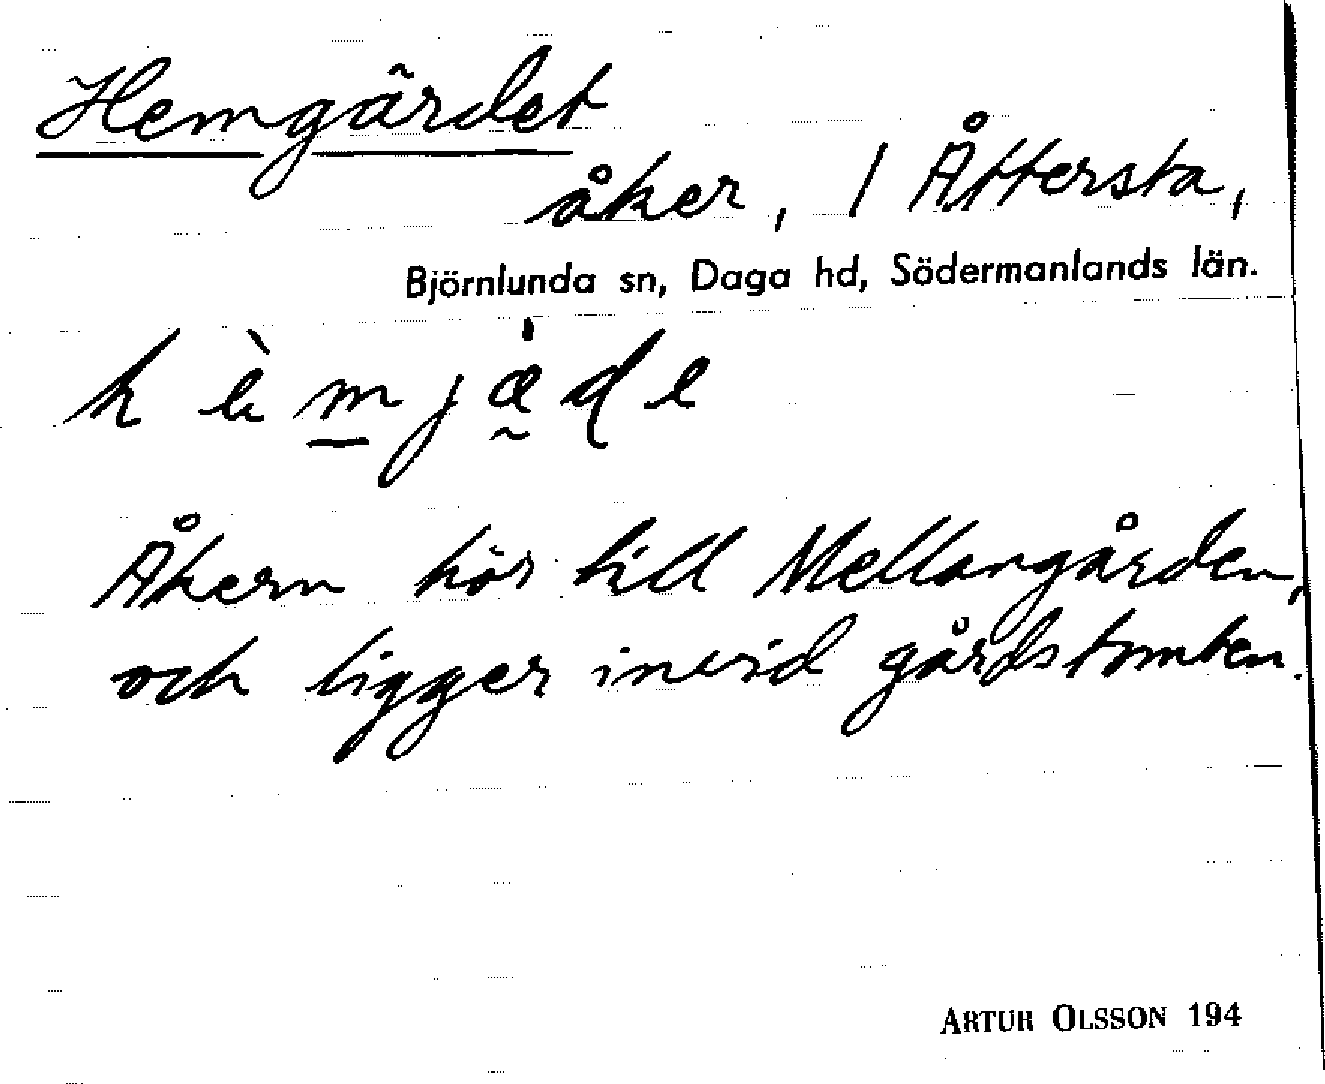 Hemgärdet
åker, / Åttersta,
Björnlunda sn, Daga hd, Södermanlands län.
Åkern hör till Mellangården,
och ligger invid gårdstomten.
ARTUR OLSSON 194